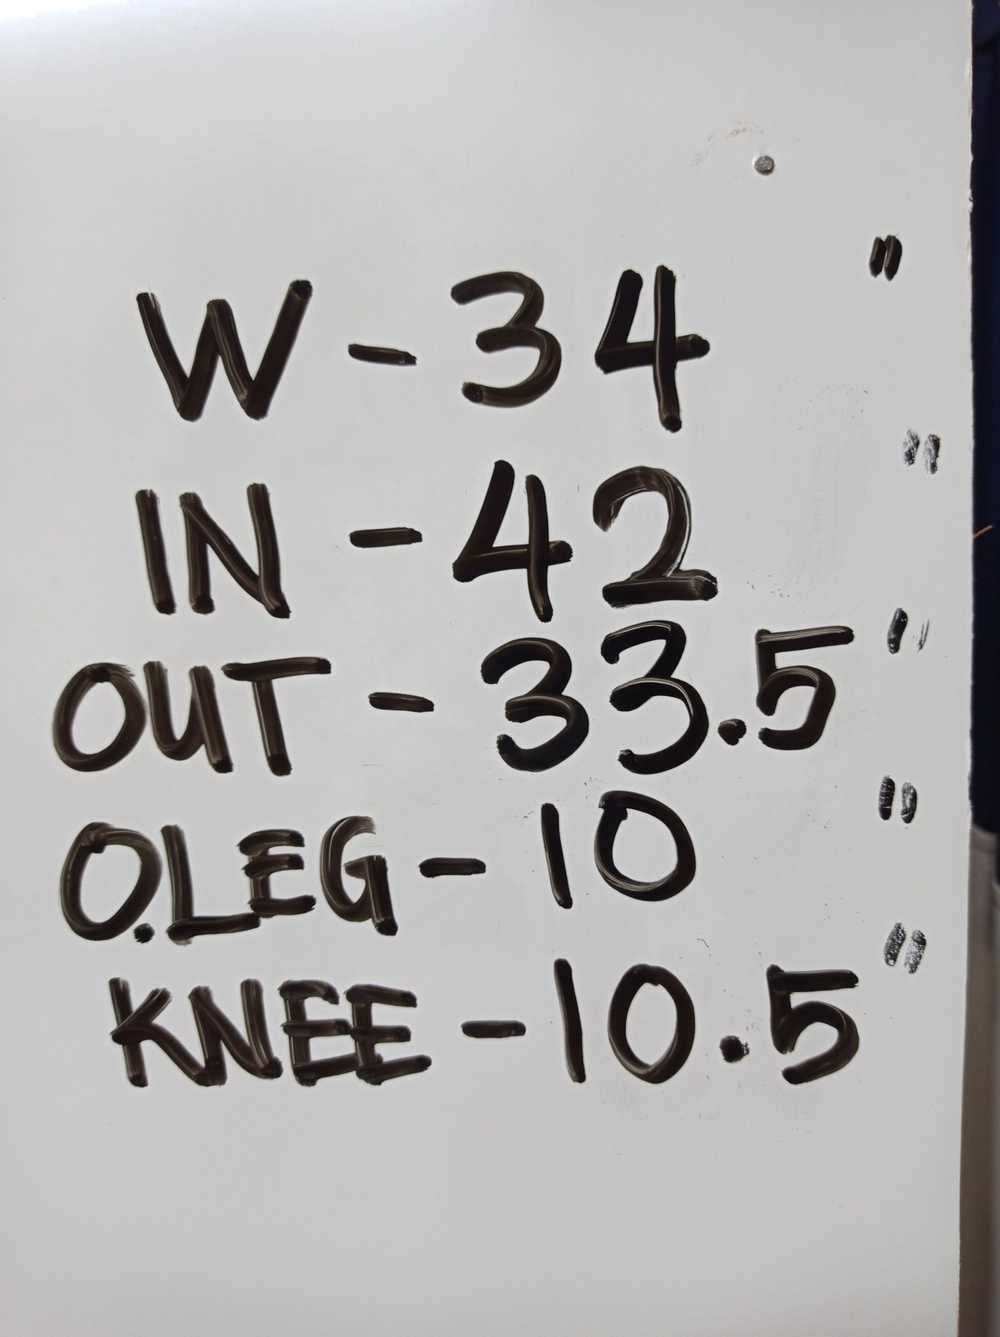 W - 34"
IN - 42"
OUT - 33.5"
O.LEG - 10"
KNEE - 10.5"